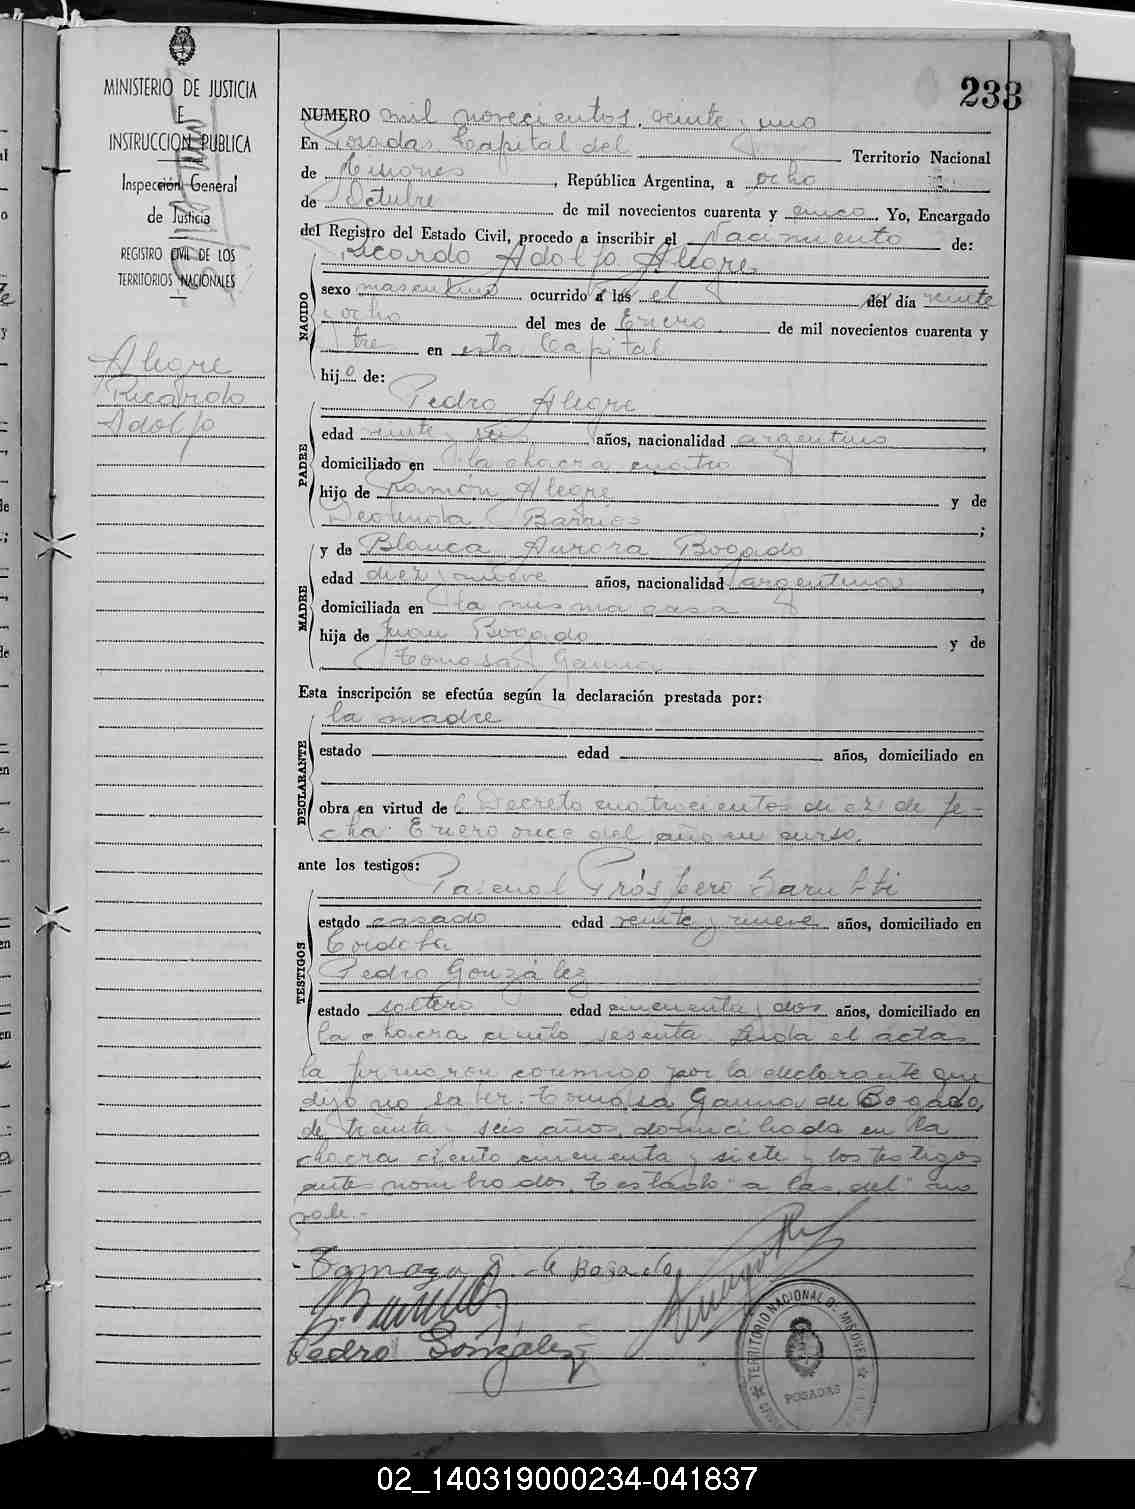 MINISTERIO DE JUSTICIA
E
INSTRUCCION PUBLICA
Inspección General
de Justicia
REGISTRO CIVIL DE LOS
TERRITORIOS NACIONALES
Alegre
Ricardo
Adolfo
233
NUMERO mil novecientos veinte y uno
En Posadas Capital del Territorio Nacional
de Misiones, República Argentina, a ocho
de Octubre de mil novecientos cuarenta y cinco. Yo, Encargado
del Registro del Estado Civil, procedo a inscribir el Nacimiento de:
Ricardo Adolfo Alegre
NACIDO
sexo masculino ocurrido a las el del día veinte
y ocho del mes de Enero de mil novecientos cuarenta y
tres en esta Capital
hijo de:
Pedro Alegre
PADRE
edad veinte y seis años, nacionalidad argentino
domiciliado en la chacra cuatro
hijo de Ramón Alegre y de
Segunda Barrios;
MADRE
y de Blanca Aurora Bogado
edad diez y nueve años, nacionalidad argentina,
domiciliada en la misma casa
hija de Juan Bogado y de
Tomasa Gauna
Esta inscripción se efectúa según la declaración prestada por:
la madre
DECLARANTE
estado edad años, domiciliado en
obra en virtud de Decreto cuatrocientos diez de fe-
cha Enero once del año en curso.
ante los testigos:
Pascual Próspero
TESTIGOS
estado casado edad veinte y nueve años, domiciliado en
Córdoba
Pedro González
estado soltero edad cincuenta y dos años, domiciliado en
la chacra ciento sesenta Leida el acta
la firmaron conmigo por la declarante que
dijo no saber Tomasa Gauna de Bogado,
de treinta y seis años, domiciliada en la
chacra ciento cincuenta y siete y los testigos
antes nombrados. Testado "a las, del" no
vale.-
Tomaza G. de Bogado
Pedro González
TERRITORIO NACIONAL DE MISIONES
POSADAS
02_140319000234-041837